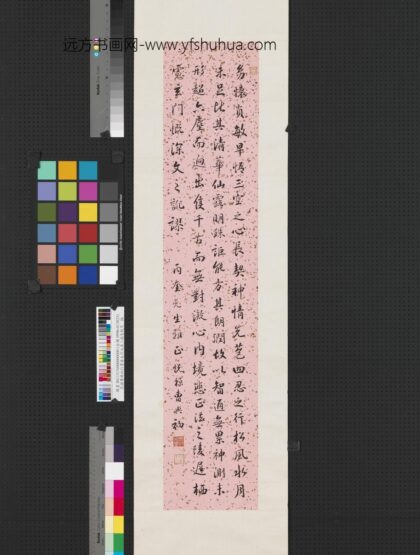 远方书画网-www.yfshuhua.com
幼懷貞敏早悟三空之心長契神情先苞四忍之行松風水月
未足比其清華仙露明珠詎能方其朗潤故以智通無累神測未
形超六塵而迥出隻千古而無對凝心內境悲正法之陵遲栖
慮玄門慨深文之訛謬
先生雅正 曹典初